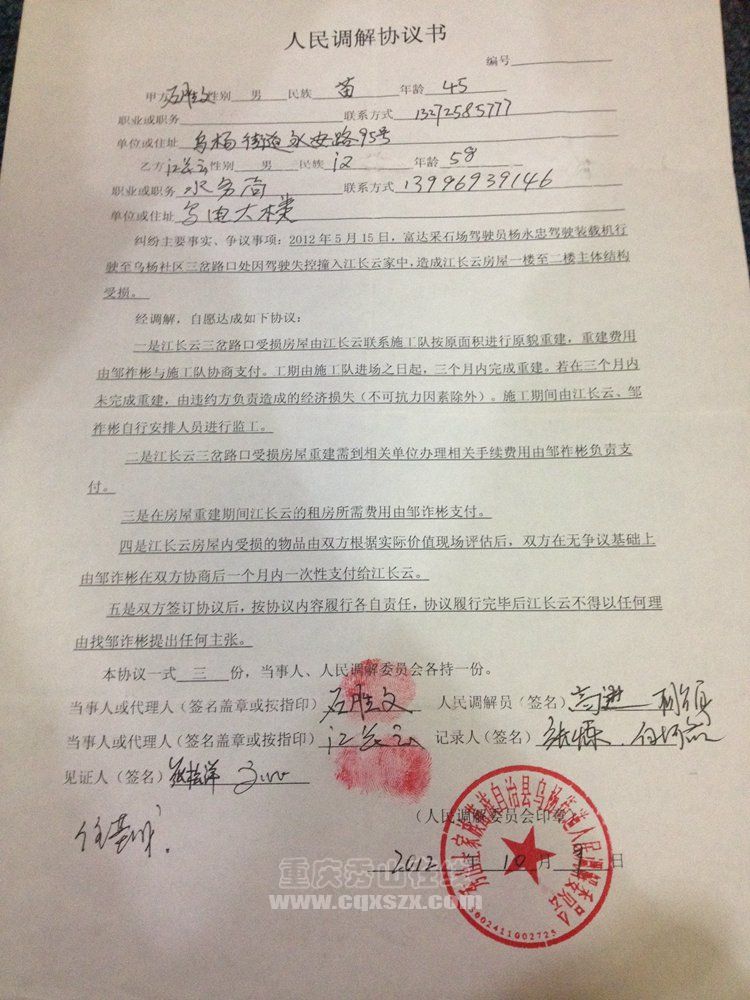 人民调解协议书
编号
甲方石胜文性别 男 民族 苗 年龄 45
职业或职务 联系方式 13272585777
单位或住址 乌杨街道永安路95号
乙方江长云性别 男 民族 汉 年龄 58
职业或职务 水务局 联系方式 13996939146
单位或住址 乌电大楼
纠纷主要事实、争议事项：2012年5月15日，富达采石场驾驶员杨永忠驾驶装载机行
驶至乌杨社区三岔路口处因驾驶失控撞入江长云家中，造成江长云房屋一楼至二楼主体结构
受损。
经调解，自愿达成如下协议：
一是江长云三岔路口受损房屋由江长云联系施工队按原面积进行原貌重建，重建费用
由邹祚彬与施工队协商支付。工期由施工队进场之日起，三个月内完成重建。若在三个月内
未完成重建，由违约方负责造成的经济损失（不可抗力因素除外）。施工期间由江长云、邹
祚彬自行安排人员进行监工。
二是江长云三岔路口受损房屋重建需到相关单位办理相关手续费用由邹祚彬负责支
付。
三是在房屋重建期间江长云的租房所需费用由邹诈彬支付。
四是江长云房屋内受损的物品由双方根据实际价值现场评估后，双方在无争议基础上
由邹诈彬在双方协商后一个月内一次性支付给江长云。
五是双方签订协议后，按协议内容履行各自责任，协议履行完毕后江长云不得以任何理
由找邹诈彬提出任何主张。
本协议一式 三 份，当事人、人民调解委员会各持一份。
当事人或代理人（签名盖章或按指印）石胜文 人民调解员（签名）
当事人或代理人（签名盖章或按指印）江长云 记录人（签名）
见证人（签名）
（人民调解委员会印章）
2012 年 10 月 日
秀山土家族苗族自治县乌杨街道人民调解委员会
5002411002725
重庆秀山在线
www.cqxszx.com